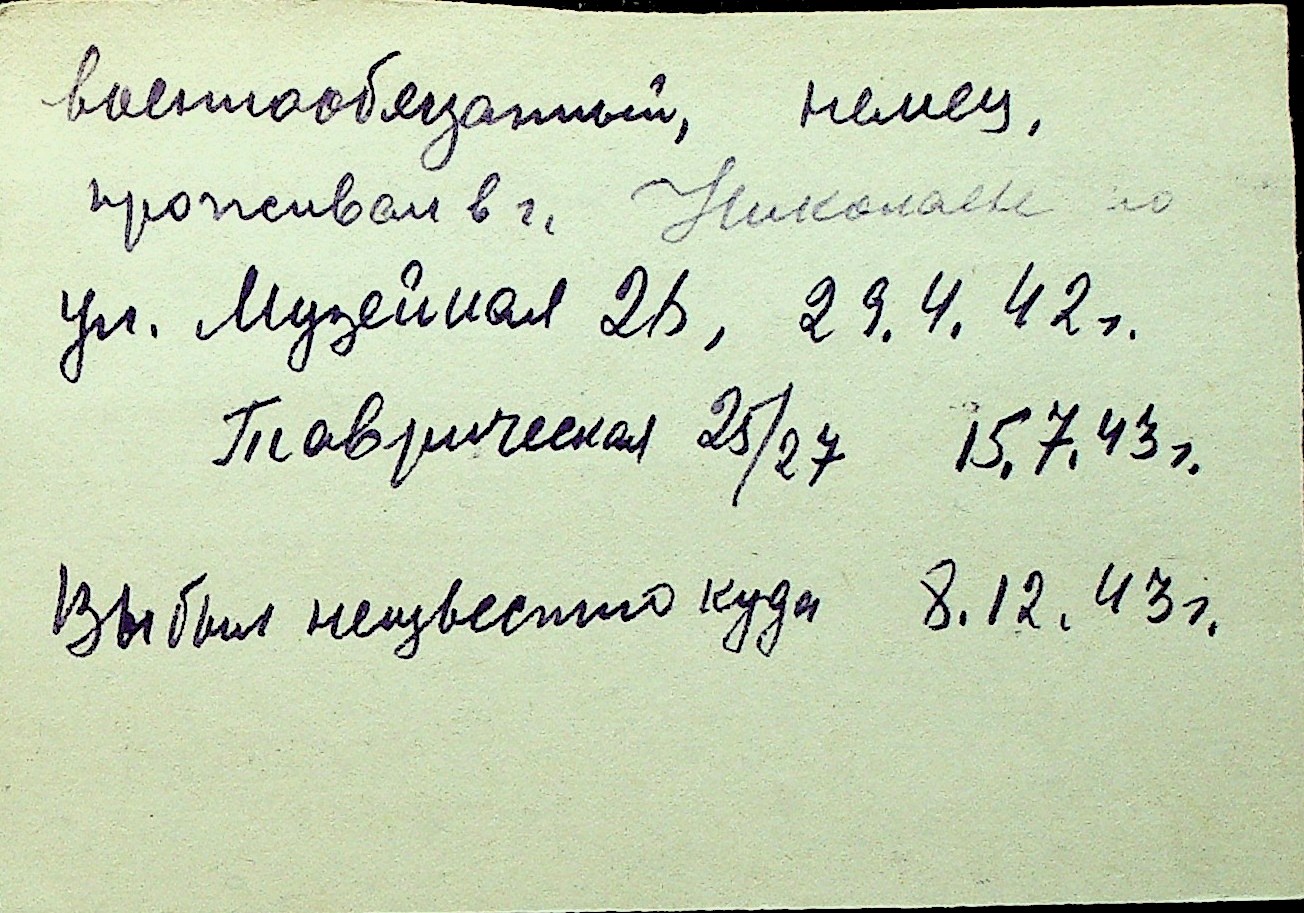 военнообязанный, немец,
проживал в г. Николаеве по
ул. Музейная 2б, 29.4.42г.
Таврическая 25/27 15.7.43г.
Выбыл неизвестно куда 8.12.43г.